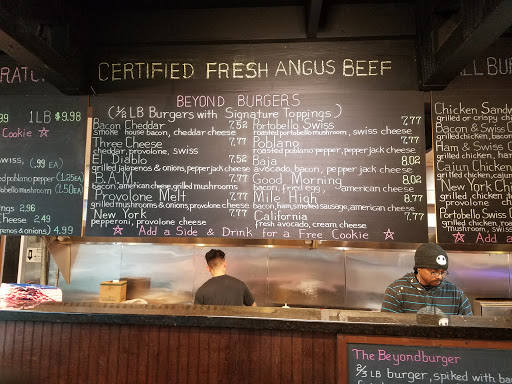 CERTIFIED FRESH ANGUS BEEF
BEYOND BURGERS
(1/3 LB Burgers with Signature Toppings)
Bacon Cheddar 7.52
smoke house bacon, cheddar cheese
Three Cheese 7.77
cheddar, provolone, swiss
El Diablo 7.52
grilled jalapenos & onions, pepperjack cheese
B.A.M. 7.77
bacon, american cheese, grilled mushrooms
Provolone Melt 7.77
grilled mushrooms & onions, provolone cheese
New York 7.77
pepperoni, provolone cheese
Portobello Swiss 7.77
roasted portobello mushroom, swiss cheese
Poblano 7.77
roasted poblano pepper, pepper jack cheese
Baja 8.02
avocado, bacon, pepper jack cheese
Good Morning 8.02
bacon, fried egg, american cheese
Mile High 8.77
bacon, ham, smoked sausage, american cheese
California 7.77
fresh avocado, cream cheese
Add a Side & Drink for a Free Cookie
1LB
$9.98
Cookie
swiss, (.99 EA)
poblano pepper (1.25 EA)
portobello mushroom (1.50 EA)
2.96
Cheese 2.49
& onions) 4.99
Chicken Sandw
grilled or crispy ch
Bacon & Swiss
grilled chicken, bacon
Ham & Swiss
grilled chicken, ham
Cajun Chicken
grilled chicken
New York Chi
grilled chicken
Portobello Swiss
grilled chicken, ro
mushroom, swiss
Add a
The Beyondburger
2/3 LB burger, spiked with ba